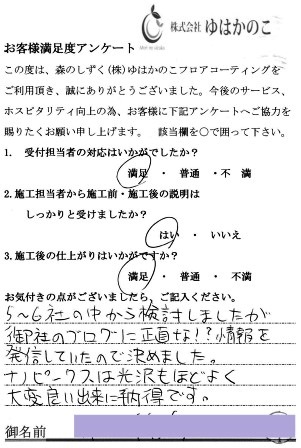 株式会社 ゆはかのこ
お客様満足度アンケート
この度は、森のしずく(株)ゆはかのこフロアコーティングを
ご利用頂き、誠にありがとうございました。今後のサービス、
ホスピタリティ向上の為、お客様に下記アンケートへご協力を
賜りたくお願い申し上げます。 該当欄を○で囲って下さい。
1. 受付担当者の対応はいかがでしたか?
満足 ・ 普通 ・不 満
2.施工担当者から施工前・施工後の説明は
しっかりと受けましたか?
はい ・ いいえ
3.施工後の仕上がりはいかがですか?
満足 ・ 普通 ・ 不満
お気付きの点がございましたら、ご記入ください。
5〜6社の中から検討しましたが
御社のブログに正直な!?情報を
発信していたので決めました。
ナノピークスは光沢もほどよく
大変良い出来に納得です。
御名前